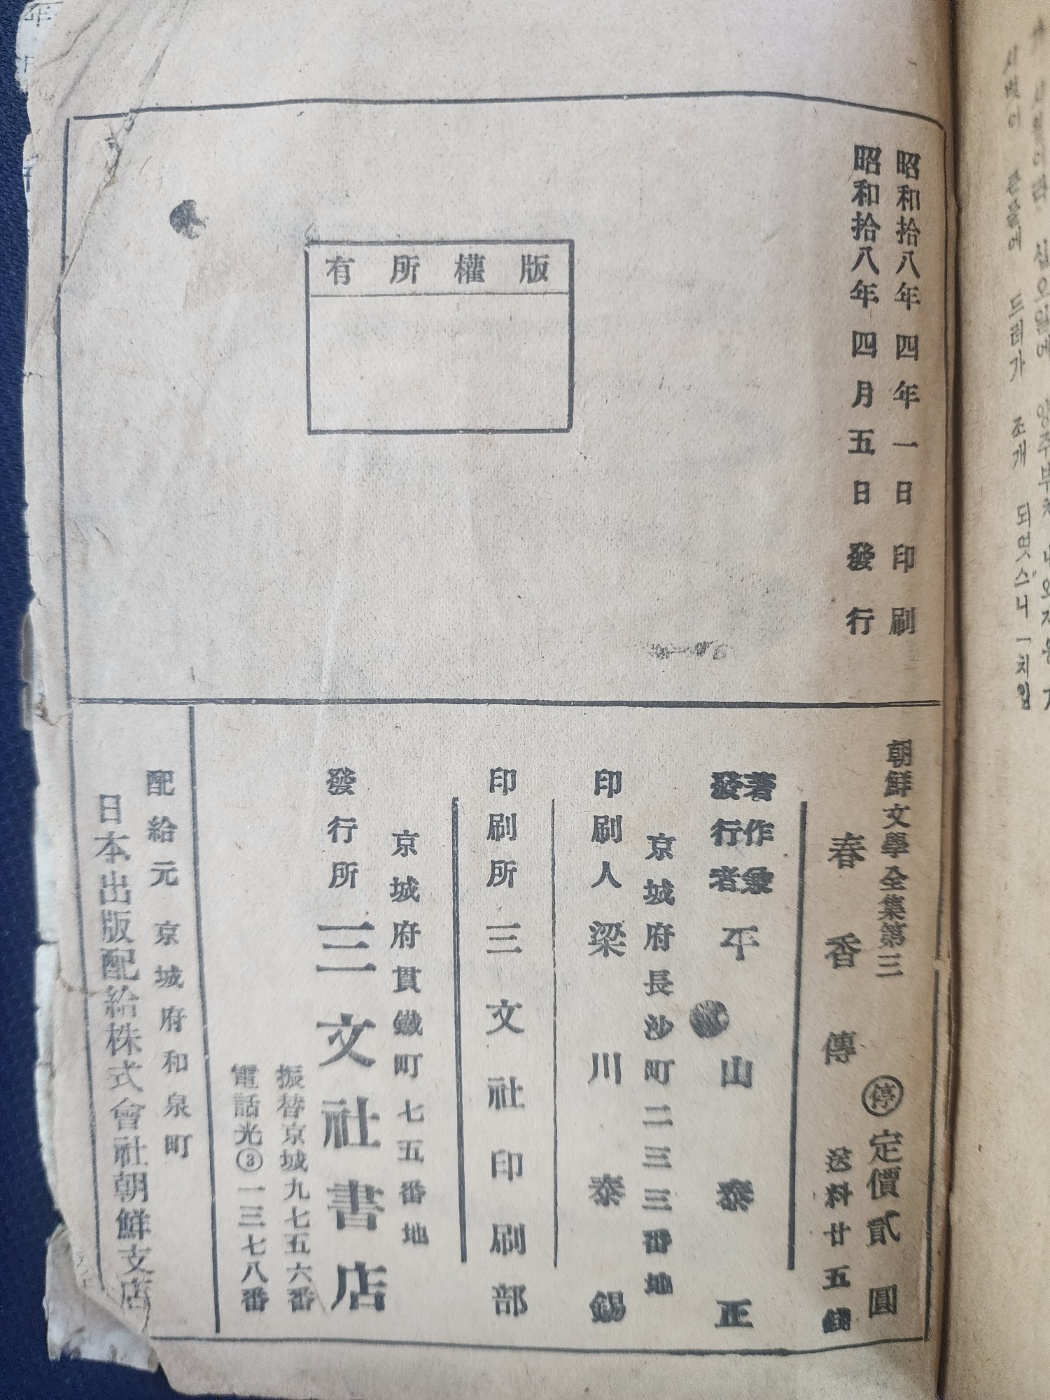 昭和拾八年四年一日印刷
昭和拾八年四月五日發行
版權所有
朝鮮文學全集第三
春香傳
停 定價貳圓
送料廿五錢
著作兼
發行者 平山泰正
京城府長沙町二三三番地
印刷人 梁川泰錫
印刷所 三文社印刷部
京城府貫鐵町七五番地
發行所 三文社書店
振替京城九七五六番
電話光③一三七八番
配給元 京城府和泉町
日本出版配給株式會社朝鮮支店